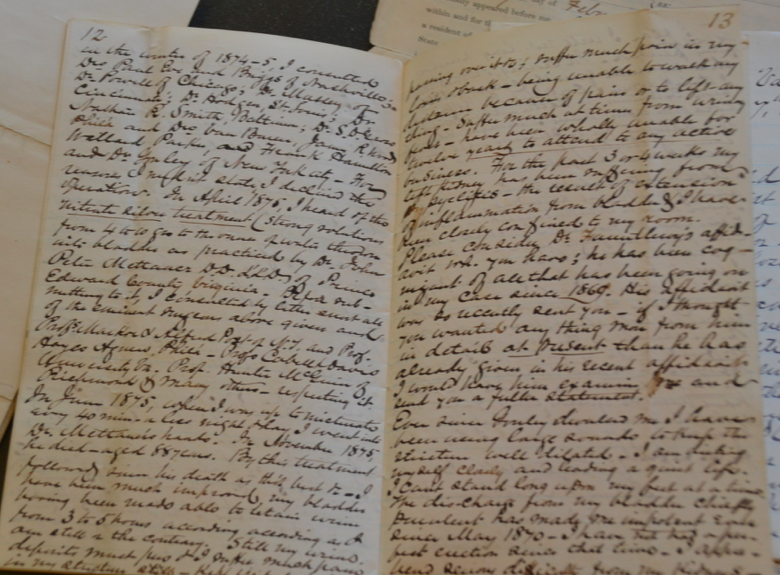 12
in the winter of 1874-5, I consulted
Drs Paul Eve and Briggs of Nashville;
Dr Powell of Chicago; Dr Massey of
Cincinnati; Dr Hodgen, St Louis; Dr
Nathan R. Smith, Baltimore; Dr S. D. Gross
Phila and Drs Van Buren, James R. Wood
Willard Parker, and Frank Hamilton
and Dr Gouley of New York city. For
reasons I declined the
operation. In April 1875, I heard of the
nitrate silver treatment (strong solutions
from 4 to to the ounce water thrown
into bladder as practiced by Dr. John
Peter Mettauer M.D. LL.D. of Prince
Edward County Virginia. Before sub-
mitting to it, I consulted by letter most all
of the eminent surgeons above given and
Prof Markoe & Alfred Post of N.Y. and Prof.
Hayes Agnew, Phila - Profs Cabell & Davis
University Va. Prof. Hunter McGuire of
Richmond & many others - respecting it.
In June 1875, when I was up to micturate
every 40 min. or less night & day, I went into
Dr. Mettauer's hands. In November 1875,
he died - aged 88 years. By this treatment
followed since his death as this best to - I
have been much improved, my bladder
having been made able to retain urine
from 3 to 5 hours according according as I
am still or the contrary. Still my urine
deposits much pus & I suffer much pain
in my stricture still -
13
passing over it &c; suffer much pain in my
back - being unable to walk any
distance because of pains or to lift any
thing - Suffer much at times from
- have been wholly unable for
twelve years to attend to any active
business. For the past 3 or 4 weeks my
left kidney has been suffering from
pyelitis - the result of extension
of inflammation from bladder & I have
been closely confined to my room.
Please consider Dr affida-
vit wh. you have; he has been cog-
nizant of all that has been going on
in my case since 1869. His affidavit
was so recently sent you - if I thought
you wanted any thing more from him
in details at present than he has
already given in his recent affidavit
I would have him examine me and
send you a fuller statement.
Ever since Gouley me I have
been using large sounds to keep the
stricture well dilated - I am
myself closely and leading a quiet life.
I can't stand long upon my feet at a time
The discharge from my bladder chiefly
purulent has made me impotent ever
since May 1870 - I have not had a per-
fect erection since that time - I appre-
hend from my kidneys -
Febr
appeared before me
within and for
a resident of
State